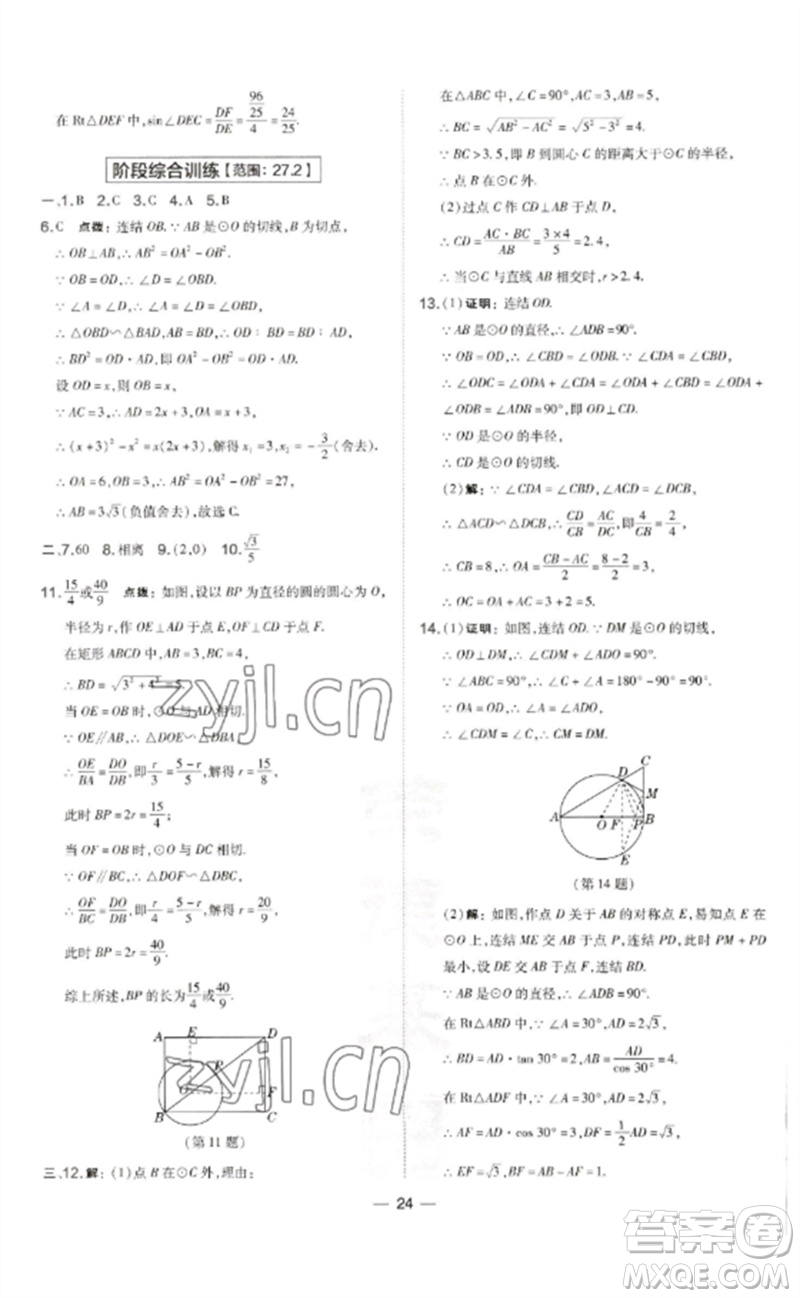 在 Rt△DEF 中,sin∠DEC = DF/DE = (96/25)/4 = 24/25.
阶段综合训练【范围: 27.2】
一、1. B 2. C 3. C 4. A 5. B
6. C 点拨: 连结 OB. ∵ AB 是⊙O 的切线,B 为切点,
∴ OB⊥AB, ∴ AB² = OA² − OB².
∵ OB = OD, ∴ ∠D = ∠OBD.
∵ ∠A = ∠D, ∴ ∠A = ∠OBD,
∴ △OBD∽△BAD, ∴ OD∶BD = BD∶AD,
∴ BD² = OD·AD, 即 OA² − OB² = OD·AD.
设 OD = x, 则 OB = x,
∵ AC = 3, ∴ AD = 2x + 3, OA = x + 3,
∴ (x + 3)² − x² = x(2x + 3), 解得 x₁ = 3, x₂ = −3/2(舍去),
∴ OA = 6, OB = 3, ∴ AB² = OA² − OB² = 27,
∴ AB = 3√3(负值舍去), 故选 C.
二、7. 60 8. 相离 9. (2,0) 10. √3/5
11. 15/4或40/9 点拨: 如图,设以 BP 为直径的圆的圆心为 O,
半径为 r,作 OE⊥AD 于点 E,OF⊥CD 于点 F.
在矩形 ABCD 中, ∵ AB = 3, BC = 4,
∴ BD = √(3² + 4²) = 5.
当 OE = OB 时, ⊙O 与 AD 相切.
∵ OE∥AB, ∴ △DOE∽△DBA,
∴ OE/BA = DO/DB, 即 r/3 = (5 − r)/5, 解得 r = 15/8,
此时 BP = 2r = 15/4;
当 OF = OB 时, ⊙O 与 DC 相切.
∵ OF∥BC, ∴ △DOF∽△DBC,
∴ OF/BC = DO/DB, 即 r/4 = (5 − r)/5, 解得 r = 20/9,
此时 BP = 2r = 40/9.
综上所述,BP 的长为 15/4 或 40/9.
A E D
P
O F
B C
(第 11 题)
三、12. 解: (1)点 B 在⊙C 外,理由:
在△ABC 中, ∠C = 90°, AC = 3, AB = 5,
∴ BC = √(AB² − AC²) = √(5² − 3²) = 4.
∵ BC > 3.5, 即 B 到圆心 C 的距离大于⊙C 的半径,
∴ 点 B 在⊙C 外.
(2)过点 C 作 CD⊥AB 于点 D,
∴ CD = AC·BC/AB = 3×4/5 = 2.4,
∴ 当⊙C 与直线 AB 相交时, r > 2.4.
13. (1)证明: 连结 OD.
∵ AB 是⊙O 的直径, ∴ ∠ADB = 90°.
∵ OB = OD, ∴ ∠ODB = ∠CBD. ∵ ∠CDA = ∠CBD,
∴ ∠ODC = ∠ODA + ∠CDA = ∠ODA + ∠CBD = ∠ODA +
∠ODB = ∠ADB = 90°, 即 OD⊥CD.
∵ OD 是⊙O 的半径,
∴ CD 是⊙O 的切线.
(2)解: ∵ ∠CDA = ∠CBD, ∠ACD = ∠DCB,
∴ △ACD∽△DCB, ∴ CD/CB = AC/DC, 即 4/CB = 2/4,
∴ CB = 8, ∴ OA = (CB − AC)/2 = (8 − 2)/2 = 3,
∴ OC = OA + AC = 3 + 2 = 5.
14. (1)证明: 如图,连结 OD. ∵ DM 是⊙O 的切线,
∴ OD⊥DM, ∴ ∠CDM + ∠ADO = 90°.
∵ ∠ABC = 90°, ∴ ∠C + ∠A = 180° − 90° = 90°.
∵ OA = OD, ∴ ∠A = ∠ADO,
∴ ∠CDM = ∠C, ∴ CM = DM.
C
D
M
A O F P B
E
(第 14 题)
(2)解: 如图,作点 D 关于 AB 的对称点 E,易知点 E 在
⊙O 上,连结 ME 交 AB 于点 P,连结 PD,此时 PM + PD
最小,设 DE 交 AB 于点 F,连结 BD.
∵ AB 是⊙O 的直径, ∴ ∠ADB = 90°.
在 Rt△ABD 中, ∵ ∠A = 30°, AD = 2√3,
∴ BD = AD·tan 30° = 2, AB = AD/cos 30° = 4.
在 Rt△ADF 中, ∵ ∠A = 30°, AD = 2√3,
∴ AF = AD·cos 30° = 3, DF = 1/2 AD = √3,
∴ EF = √3, BF = AB − AF = 1.
— 24 —
zyjl.cn
zyjl.cn
答案卷
MXQE.COM